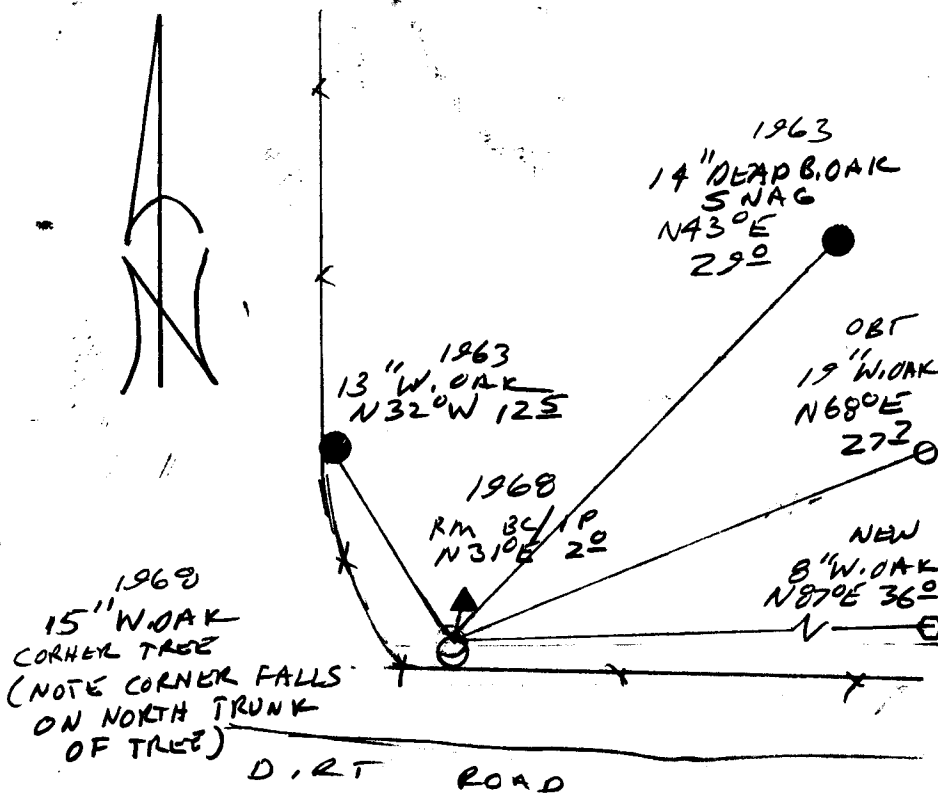 1963
14" DEAD B.OAK
SNAG
N43°E
29⁰
1963
13" W.OAK
N32°W 12⁵
OBT
19" W.OAK
N68°E
27²
1968
RM BC/IP
N31°E 2⁰
NEW
8" W.OAK
N87°E 36⁰
1968
15" W.OAK
CORNER TREE
(NOTE CORNER FALLS
ON NORTH TRUNK
OF TREE)
DIRT ROAD